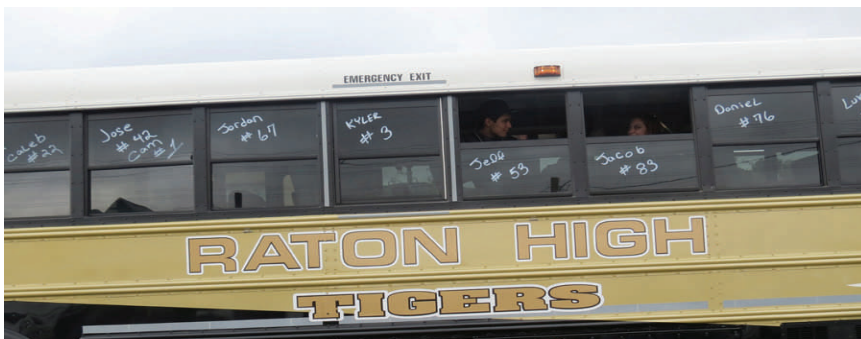 EMERGENCY EXIT
Caleb
#22
Jose
#42
Cam
#1
Jordan
#67
KYLER
#3
Jacob
#83
Daniel
#76
#53
RATON HIGH
TIGERS